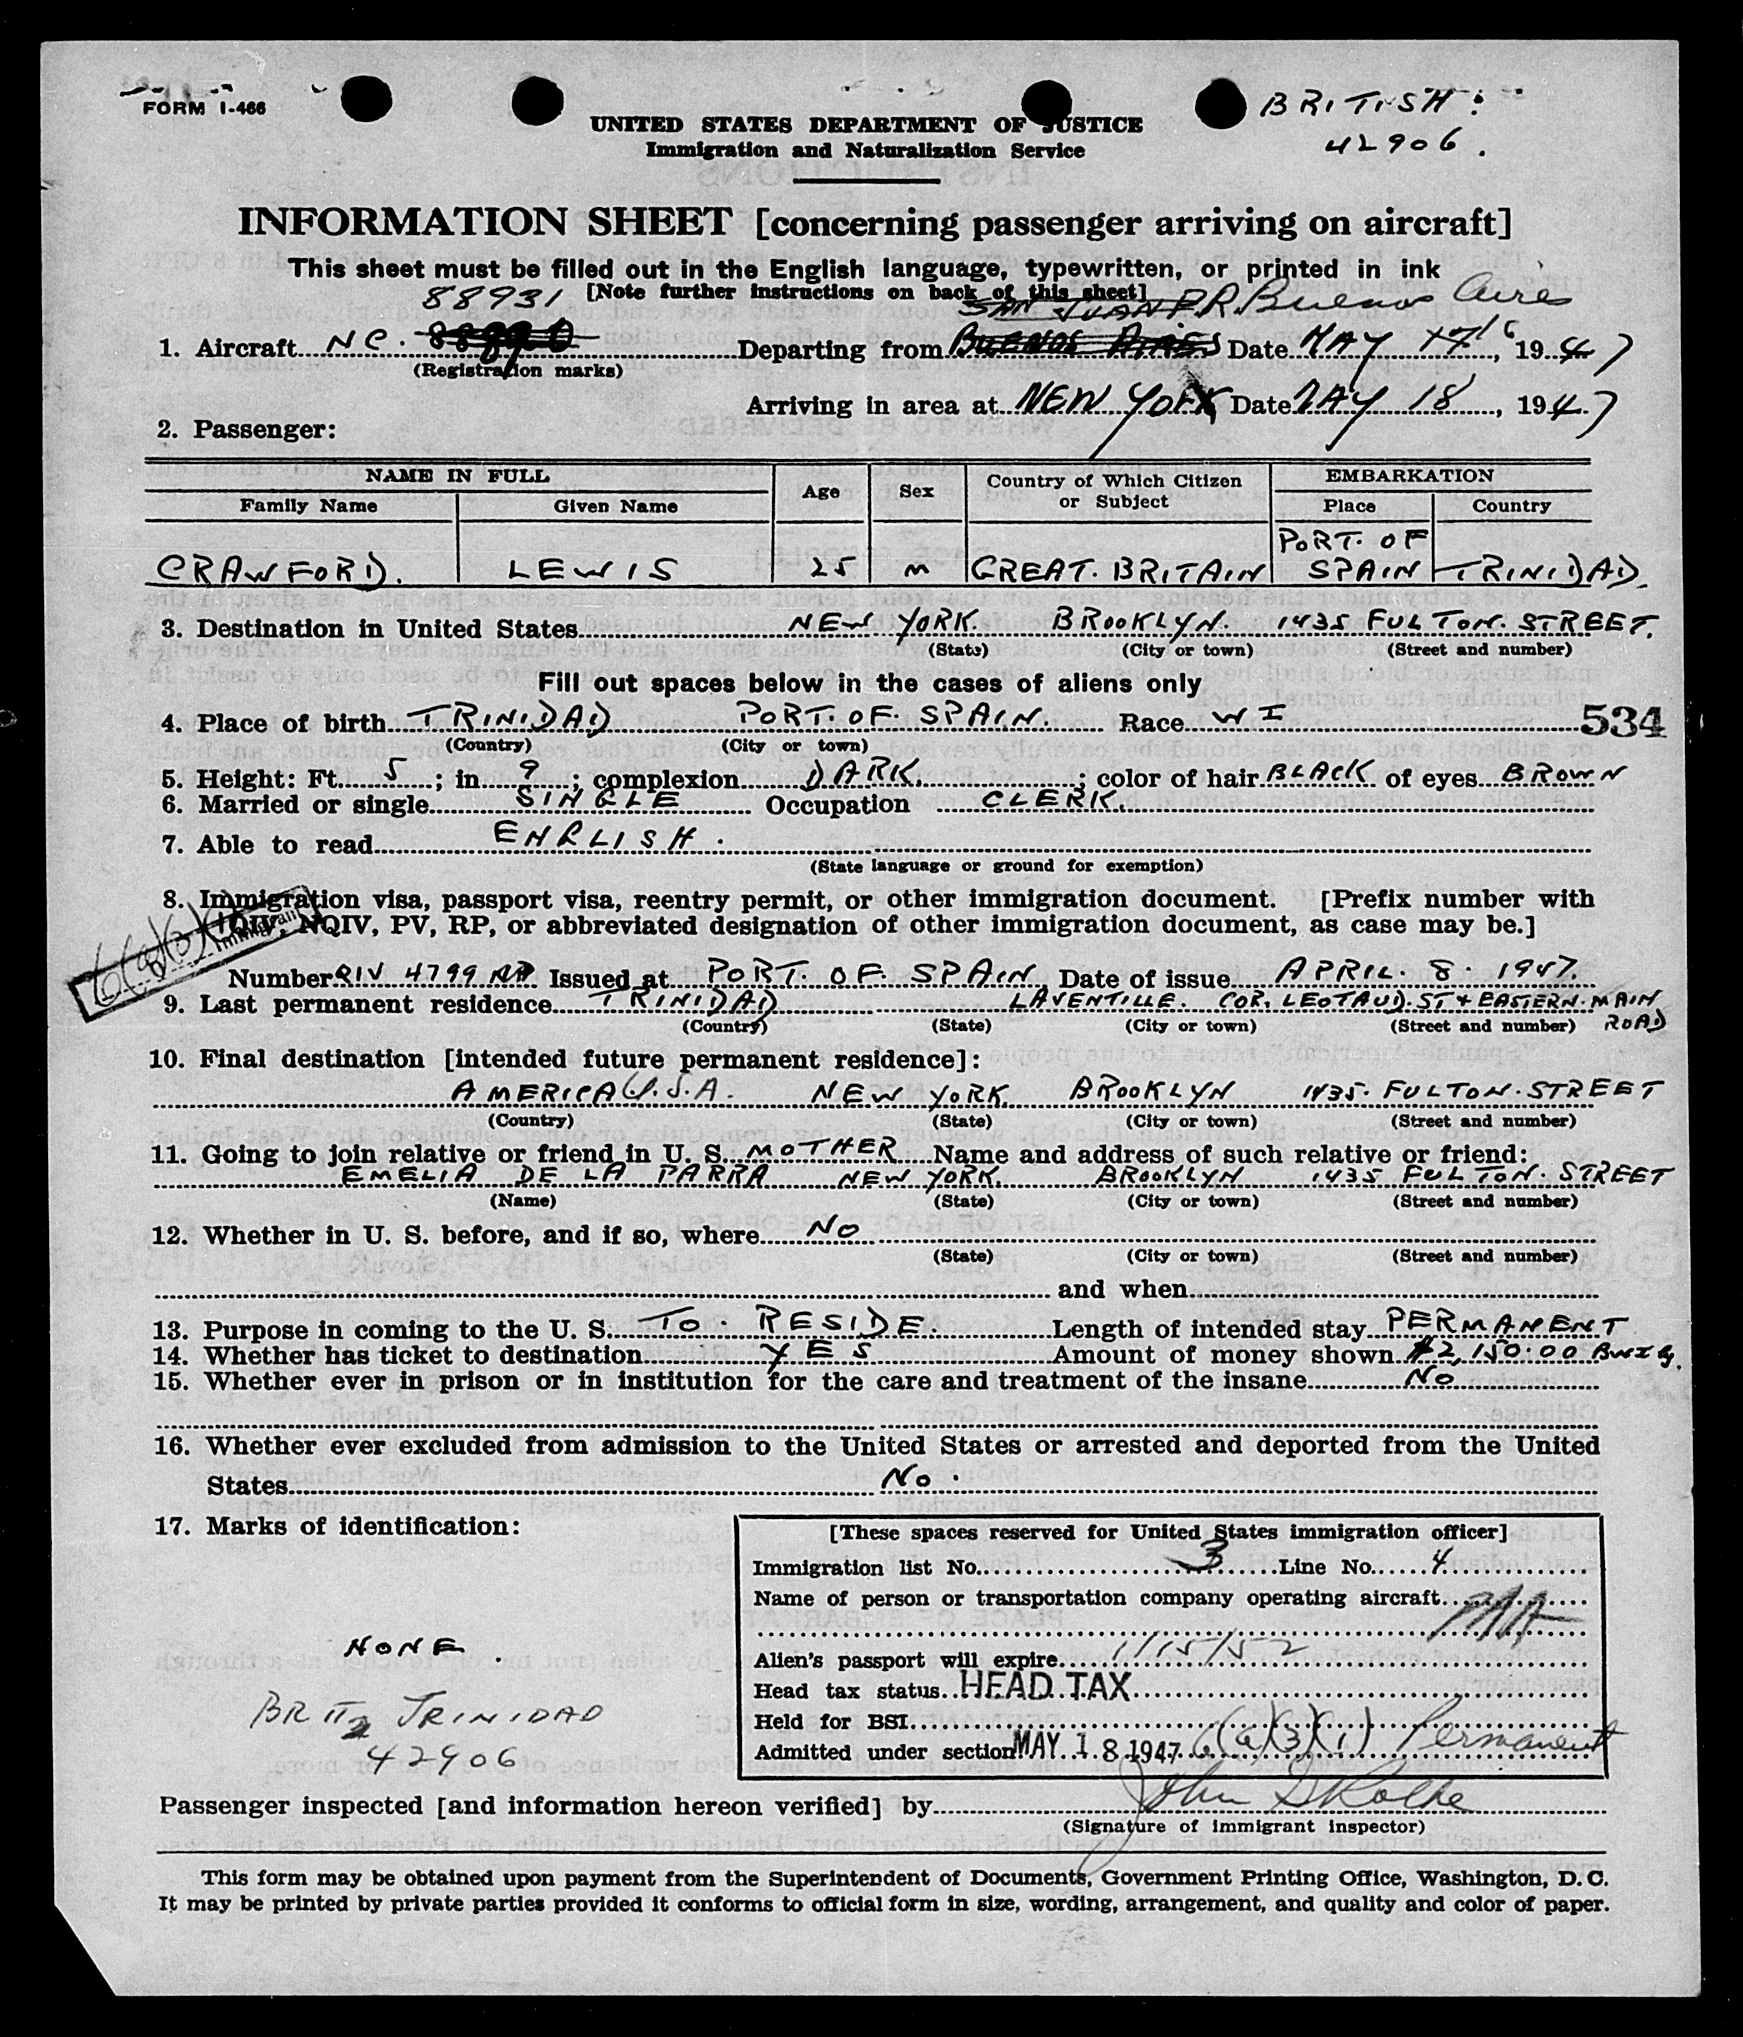 FORM I-466
BRITISH:
42906.
UNITED STATES DEPARTMENT OF JUSTICE
Immigration and Naturalization Service
INFORMATION SHEET [concerning passenger arriving on aircraft]
This sheet must be filled out in the English language, typewritten, or printed in ink
[Note further instructions on back of this sheet]
88931 SAN JUAN P.R. Buenos Aires
1. Aircraft NC. Departing from BUENOS AIRES Date MAY 17 16, 1947
(Registration marks)
Arriving in area at NEW YORK Date MAY 18, 1947
2. Passenger:
NAME IN FULL Age Sex Country of Which Citizen or Subject EMBARKATION
Family Name Given Name Place Country
CRAWFORD. LEWIS 25 M GREAT. BRITAIN PORT. OF SPAIN TRINIDAD.
3. Destination in United States NEW YORK. BROOKLYN. 1435 FULTON. STREET.
(State) (City or town) (Street and number)
Fill out spaces below in the cases of aliens only
4. Place of birth TRINIDAD PORT. OF. SPAIN. Race WI 534
(Country) (City or town)
5. Height: Ft. 5; in. 9; complexion DARK.; color of hair BLACK of eyes BROWN
6. Married or single SINGLE Occupation CLERK.
7. Able to read ENGLISH.
(State language or ground for exemption)
8. Immigration visa, passport visa, reentry permit, or other immigration document. [Prefix number with
QIV, NQIV, PV, RP, or abbreviated designation of other immigration document, as case may be.]
6(a)(3)(1)
Immigrant
Number QIV 4799 Issued at PORT. OF. SPAIN Date of issue APRIL. 8. 1947.
9. Last permanent residence TRINIDAD LAVENTILLE. COR. LEOTAUD. ST + EASTERN. MAIN ROAD
(Country) (State) (City or town) (Street and number)
10. Final destination [intended future permanent residence]:
AMERICA U.S.A. NEW YORK. BROOKLYN 1435. FULTON. STREET
(Country) (State) (City or town) (Street and number)
11. Going to join relative or friend in U. S. MOTHER Name and address of such relative or friend:
EMELIA DE LA PARRA NEW YORK. BROOKLYN 1435 FULTON. STREET
(Name) (State) (City or town) (Street and number)
12. Whether in U. S. before, and if so, where NO
(State) (City or town) (Street and number)
and when
13. Purpose in coming to the U. S. TO. RESIDE. Length of intended stay PERMANENT
14. Whether has ticket to destination YES Amount of money shown $2,150.00 BWI
15. Whether ever in prison or in institution for the care and treatment of the insane NO
16. Whether ever excluded from admission to the United States or arrested and deported from the United
States NO.
17. Marks of identification:
NONE.
BRIT TRINIDAD
42906
[These spaces reserved for United States immigration officer]
Immigration list No. 3 Line No. 4
Name of person or transportation company operating aircraft PAA
Alien's passport will expire 1/15/52
Head tax status HEAD TAX
Held for BSI
Admitted under section MAY 18 1947 6(a)(3)(1) Permanent
Passenger inspected [and information hereon verified] by
(Signature of immigrant inspector)
This form may be obtained upon payment from the Superintendent of Documents, Government Printing Office, Washington, D. C.
It may be printed by private parties provided it conforms to official form in size, wording, arrangement, and quality and color of paper.